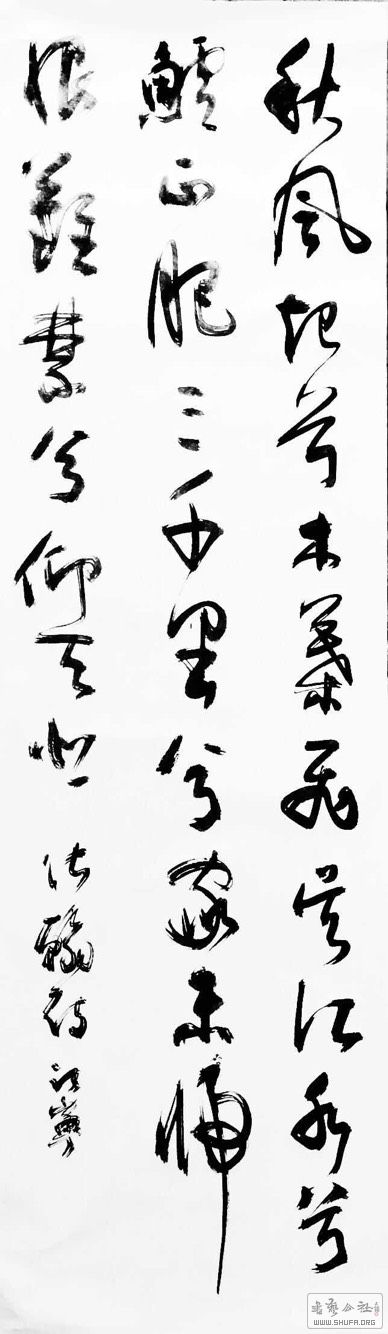 秋風起兮木葉飛吳江水兮
鱸正肥三千里兮家未歸
恨難禁兮仰天悲
張翰詩
書藝公社
WWW.SHUFA.ORG